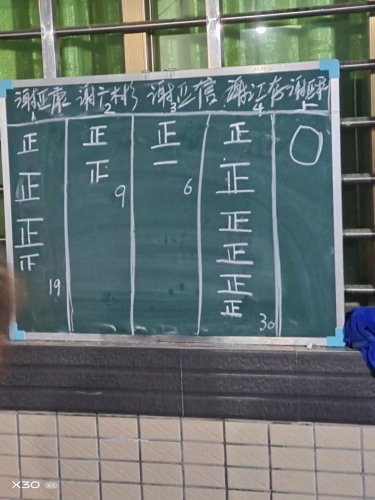 谢正 谢 谢正信 谢江 谢
1 2 3 4 5
正 正 正 正 0
正 正 一 正
正 9 6 正
正 正
19 正
正
30
X30